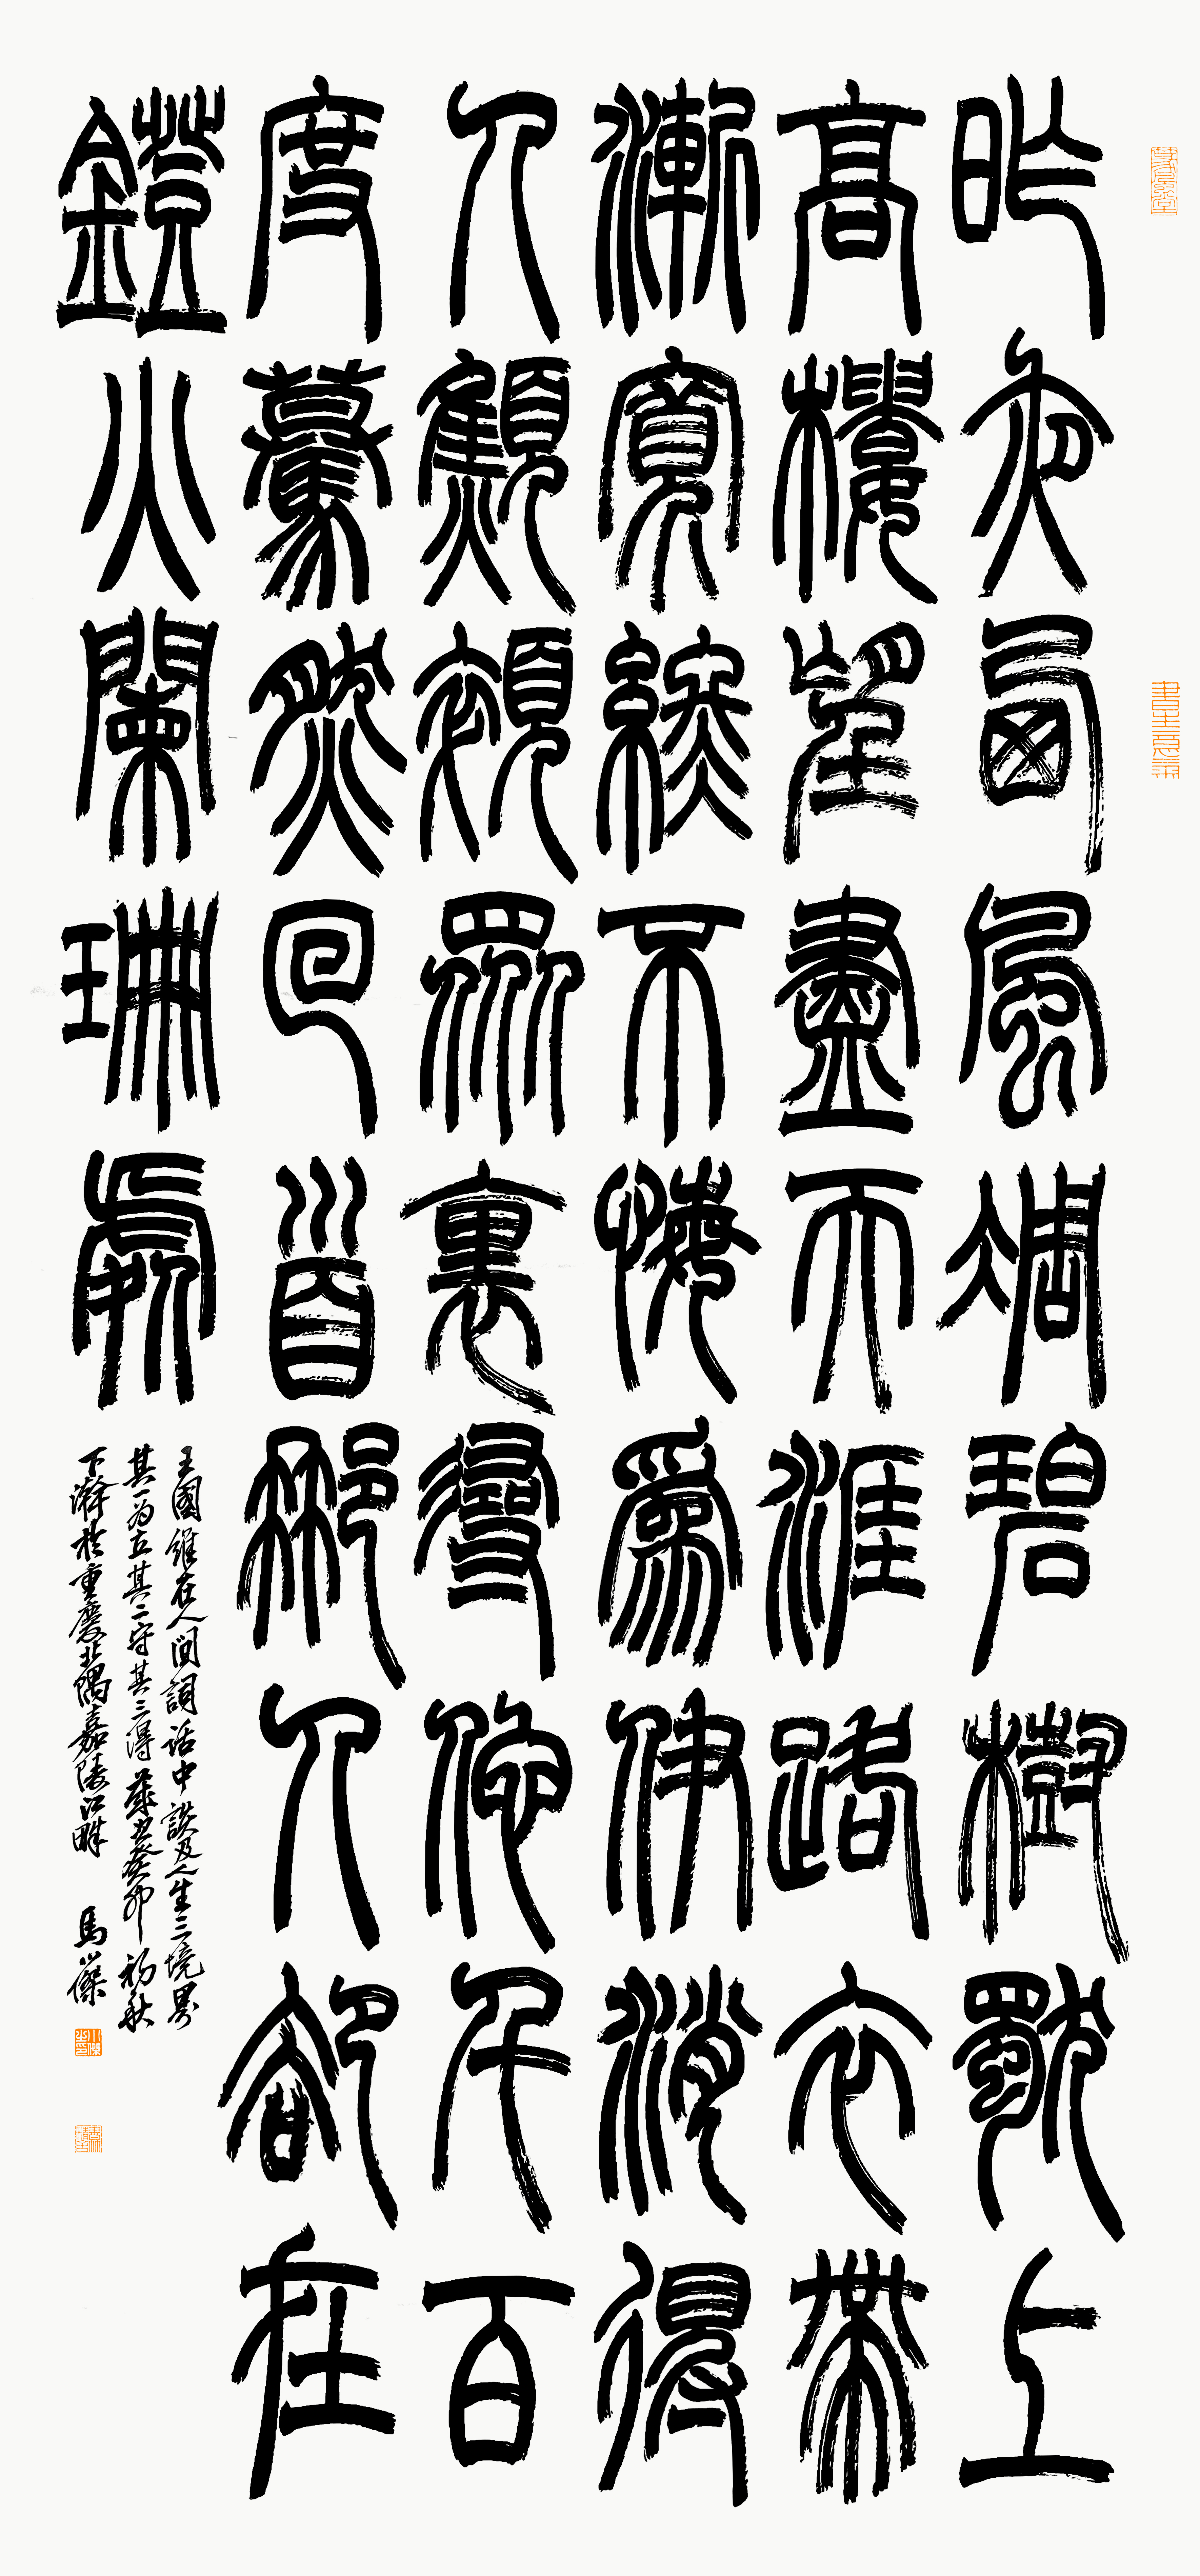 昨夜西風凋碧樹獨上
高樓望盡天涯路衣帶
漸寬終不悔爲伊消得
人顦顇眾裏尋他千百
度驀然回首那人卻在
鐙火闌珊處
王國維在人間詞話中談及人生三境界
其一为立其二守其三得歲癸卯初秋
下澣於重慶北隅嘉陵江畔 馬小傑
書生意氣